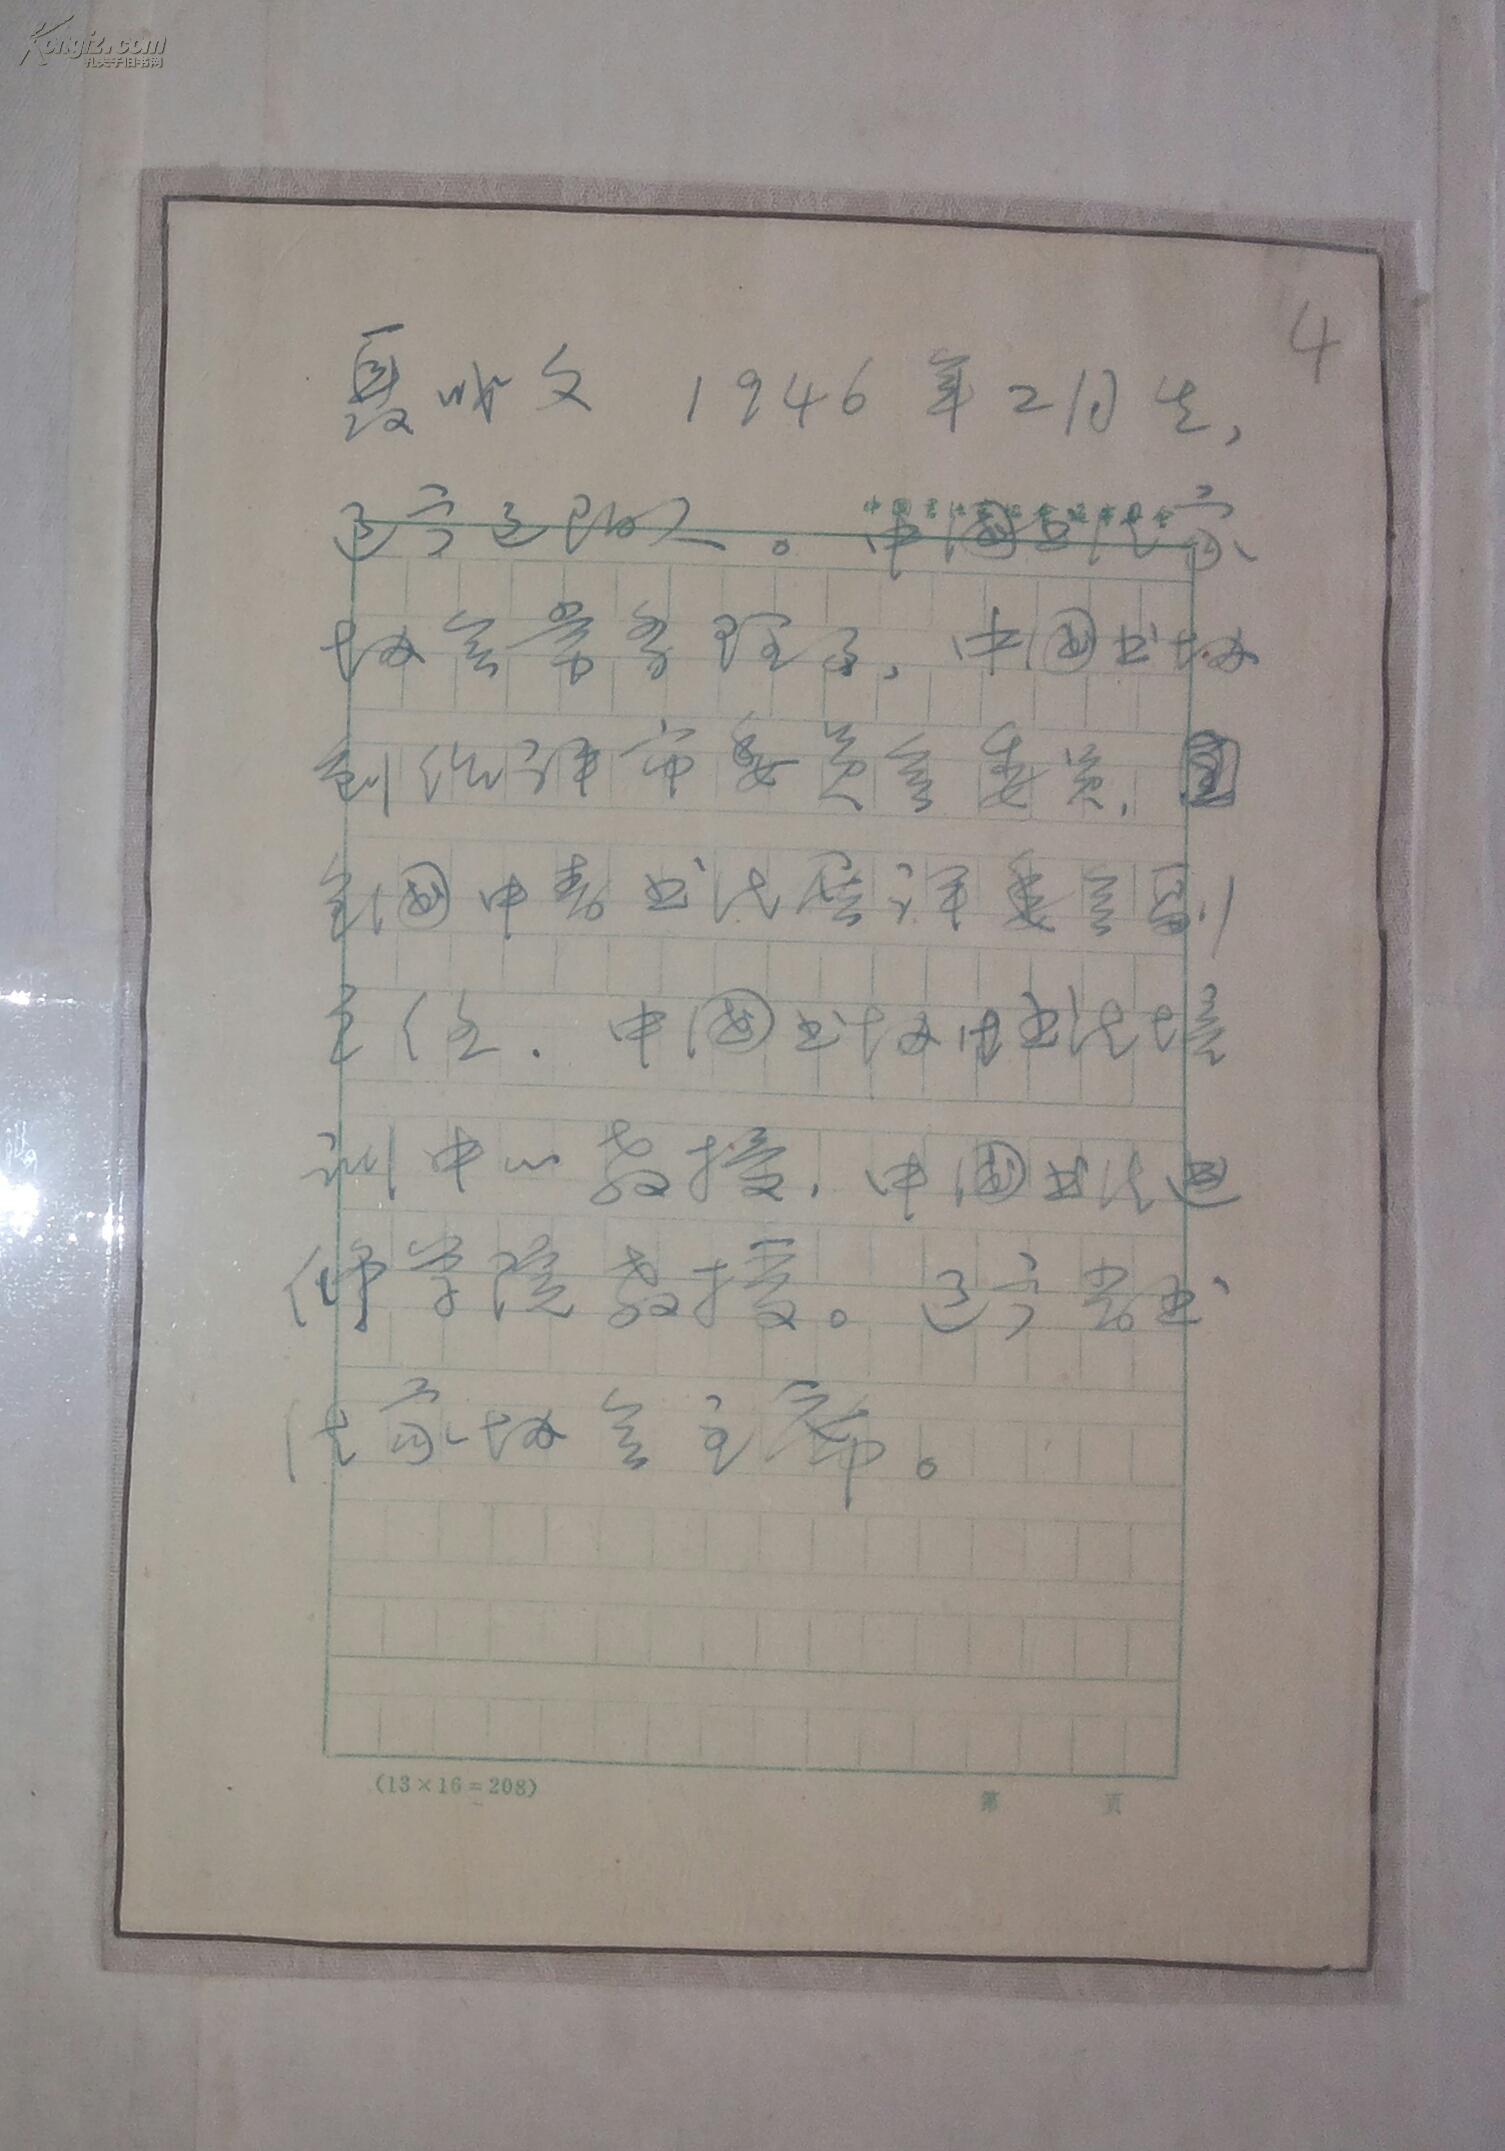 Kongfz.com
孔夫子旧书网
4
聂成文 1946年2月生，
中国书法家协会
辽宁辽阳人。中国书法家
协会常务理事，中国书协
创作评审委员会委员，
全国中青书法展评委会副
主任．中国书协书法培
训中心教授，中国书法进
修学院教授。辽宁省书
法家协会主席。
(13×16=208)
第 页